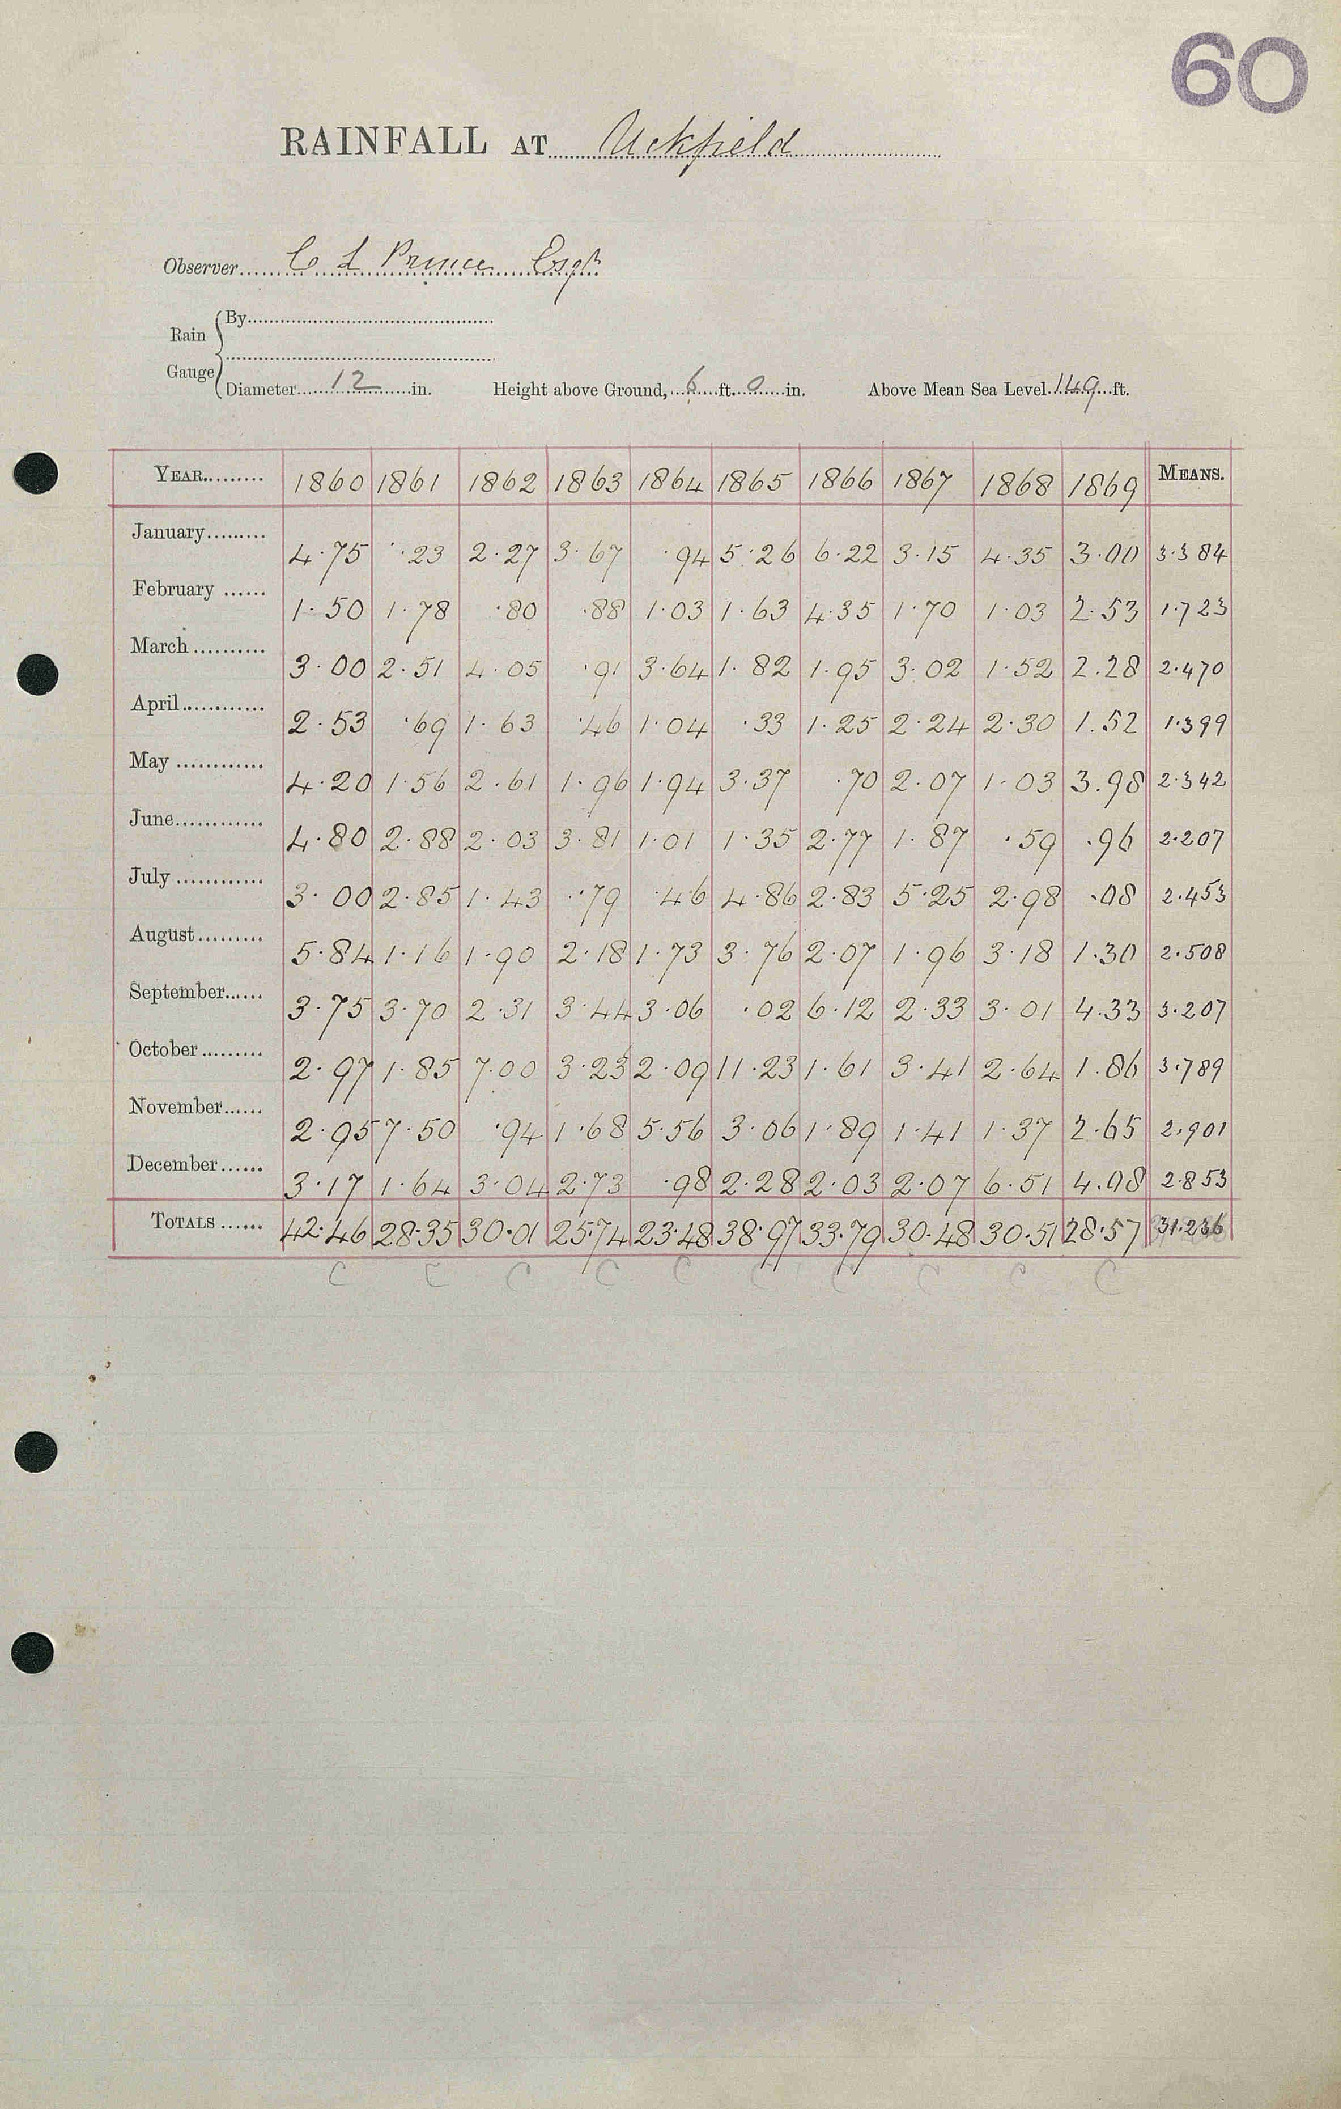 60
RAINFALL AT Uckfield
Observer C L Prince Esqr
Rain Gauge By
Diameter 12 in. Height above Ground, 6 ft. 0 in. Above Mean Sea Level 149 ft.
YEAR 1860 1861 1862 1863 1864 1865 1866 1867 1868 1869 MEANS.
January 4.75 .23 2.27 3.67 .94 5.26 6.22 3.15 4.35 3.00 3.384
February 1.50 1.78 .80 .88 1.03 1.63 4.35 1.70 1.03 2.53 1.723
March 3.00 2.51 4.05 .91 3.64 1.82 1.95 3.02 1.52 2.28 2.470
April 2.53 .69 1.63 .46 1.04 .33 1.25 2.24 2.30 1.52 1.399
May 4.20 1.56 2.61 1.96 1.94 3.37 .70 2.07 1.03 3.98 2.342
June 4.80 2.88 2.03 3.81 1.01 1.35 2.77 1.87 .59 .96 2.207
July 3.00 2.85 1.43 .79 .46 4.86 2.83 5.25 2.98 .08 2.453
August 5.84 1.16 1.90 2.18 1.73 3.76 2.07 1.96 3.18 1.30 2.508
September 3.75 3.70 2.31 3.44 3.06 .02 6.12 2.33 3.01 4.33 3.207
October 2.97 1.85 7.00 3.23 2.09 11.23 1.61 3.41 2.64 1.86 3.789
November 2.95 7.50 .94 1.68 5.56 3.06 1.89 1.41 1.37 2.65 2.901
December 3.17 1.64 3.04 2.73 .98 2.28 2.03 2.07 6.51 4.08 2.853
TOTALS 42.46 28.35 30.01 25.74 23.48 38.97 33.79 30.48 30.51 28.57 31.236
C C C C C C C C C C